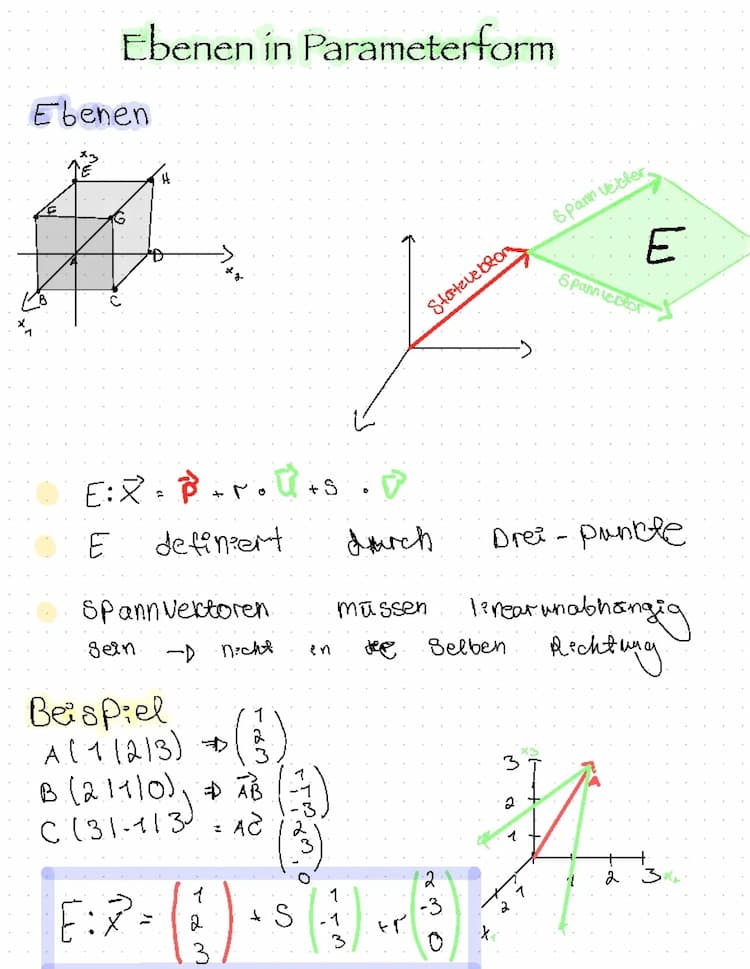 Ebenen in Parameterform
Ebenen
x₃
E
H
F
G
A
D
x₂
B
C
x₁
Spannvektor
E
Spannvektor
Startvektor
E: x⃗ = p⃗ + r · u⃗ + s · v⃗
E definiert durch Drei-puncte
Spannvektoren müssen linearunabhängig
sein → nicht in die selben Richtung
Beispiel
A(1|2|3) ⇒ (1 2 3)
B(2|1|0) ⇒ AB⃗ (1 -1 -3)
C(3|-1|3) = AC⃗ (2 -3 0)
E: x⃗ = (1 2 3) + s (1 -1 3) + r (2 -3 0)
3 x₃
A
2
1
1 2 3 x₂
1
2
x₁